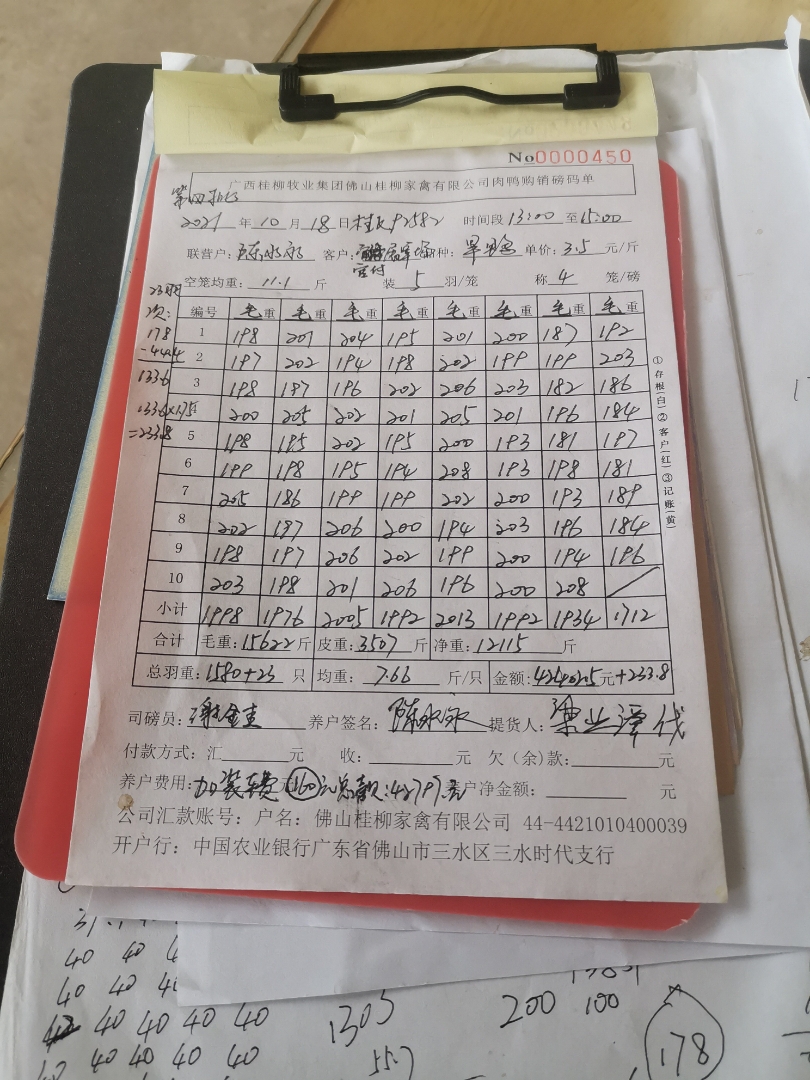 No0000450
广西桂柳牧业集团佛山桂柳家禽有限公司肉鸭购销磅码单
第四批
2021 年 10 月 18 日 桂KP2582 时间段 13:00 至 15:00
联营户: 陈水永 客户: 种: 单价: 3.5 元/斤
空笼均重: 11.1 斤 装 5 羽/笼 称 4 笼/磅
编号 毛重 毛重 毛重 毛重 毛重 毛重 毛重 毛重
1 198 201 204 195 201 200 187 192
2 197 202 194 198 202 199 199 203
3 198 197 196 202 206 203 182 186
4 200 205 202 201 205 201 196 184
5 198 195 202 195 200 193 181 197
6 199 198 195 194 208 193 198 181
7 205 186 199 199 202 200 193 189
8 202 197 206 200 194 203 196 184
9 198 197 206 202 199 200 194 196
10 203 198 201 206 196 200 208
小计 1998 1976 2005 1992 2013 1992 1934 1712
合计 毛重: 15622 斤 皮重: 3507 斤 净重: 12115 斤
总羽重: 1580+23 只 均重: 7.66 斤/只 金额: 42402.5 元 +233.8
23羽
次:
178
-44.4
133.6
133.6×1.75
=233.8
①存根(白)②客户(红)③记账(黄)
司磅员: 养户签名: 陈水永 提货人:
付款方式: 汇 元 收: 元 欠(余)款: 元
养户费用: 加装费 160元 总款: 42797元 户净金额: 元
公司汇款账号: 户名: 佛山桂柳家禽有限公司 44-4421010400039
开户行: 中国农业银行广东省佛山市三水区三水时代支行
40 40
40 40
40 40 40 40
40 40 40 40
1305
55.7
200 100
178